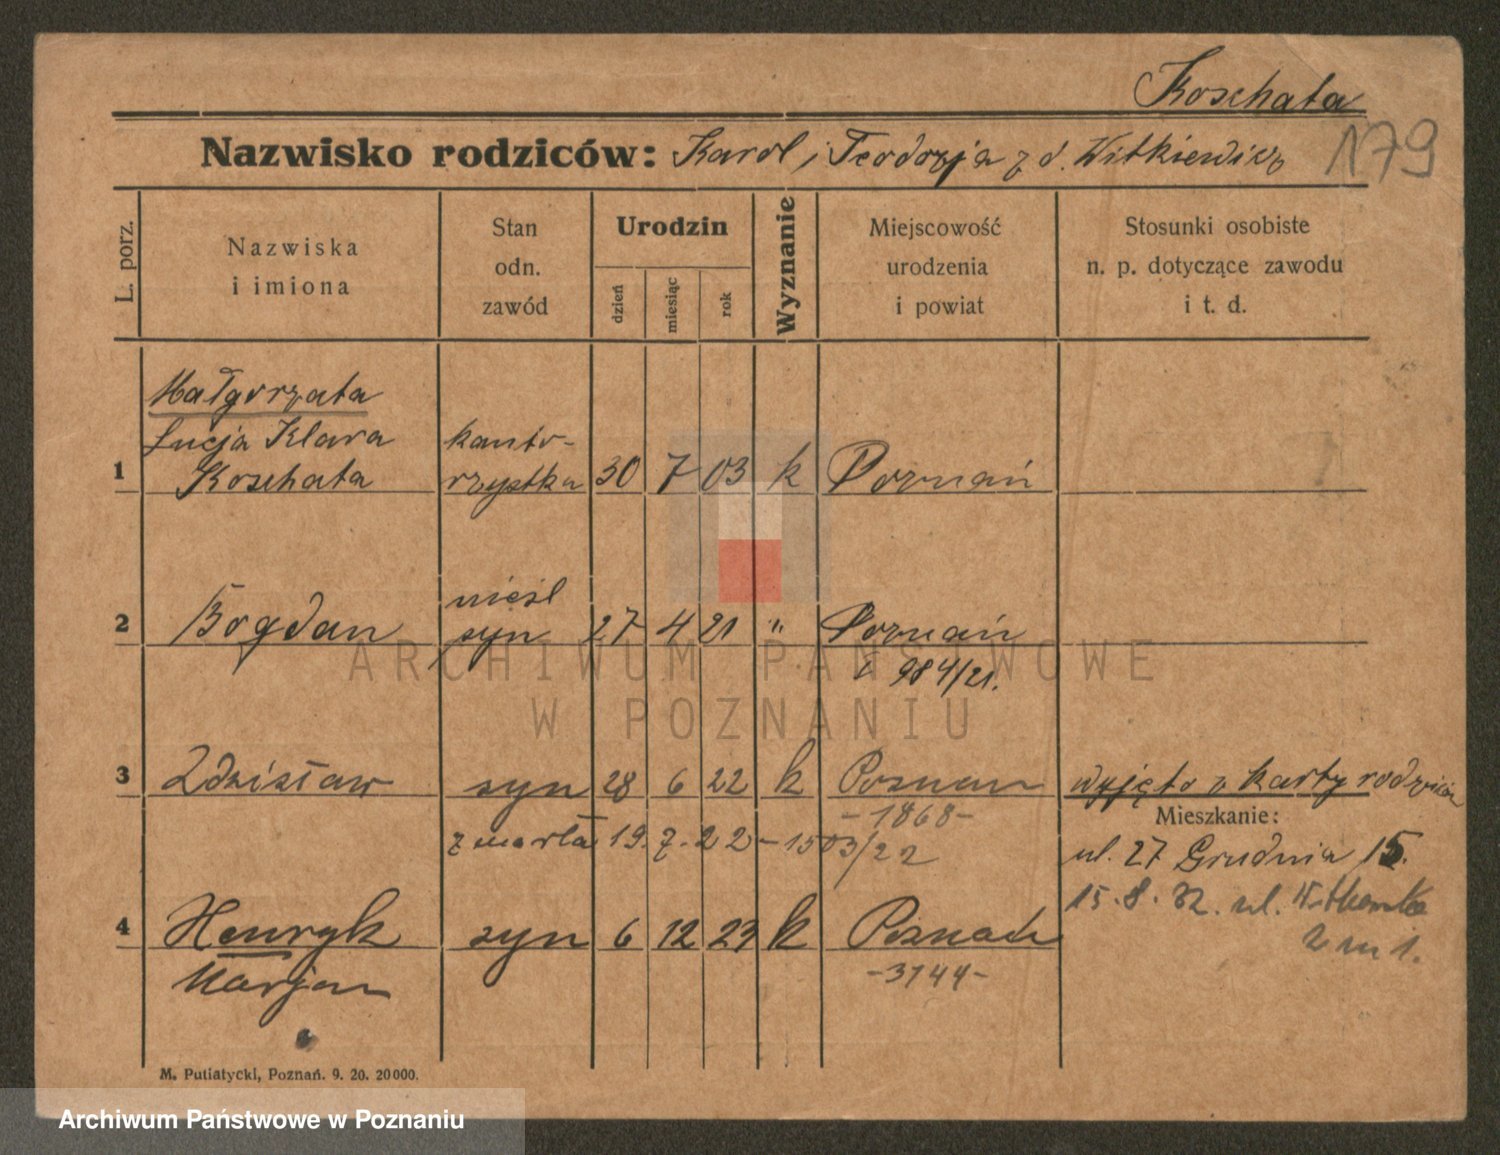 Koschata
Nazwisko rodziców: Karol i Teodozja z d. Witkiewicz
179
L. porz.
Nazwiska
i imiona
Stan
odn.
zawód
Urodzin
dzień
miesiąc
rok
Wyznanie
Miejscowość
urodzenia
i powiat
Stosunki osobiste
n. p. dotyczące zawodu
i t. d.
Małgorzata
Łucja Klara
kanto-
1 Koschata rzystka 30 7 03 k Poznań
nieśl
2 Bogdan syn 27 4 21 " Poznań
984/21.
ARCHIWUM PAŃSTWOWE
W POZNANIU
3 Zdzisław syn 28 6 22 k Poznan wyjęto z karty rodziców
-1868-
Mieszkanie:
zmarła 19. 7. 22 - 1503/22
ul. 27 Grudnia 15.
15.8. 32. ul.
4 Henryk syn 6 12 23 k Poznań
2 m 1.
Marjan
-3144-
M. Putiatycki, Poznań. 9. 20. 20000.
Archiwum Państwowe w Poznaniu